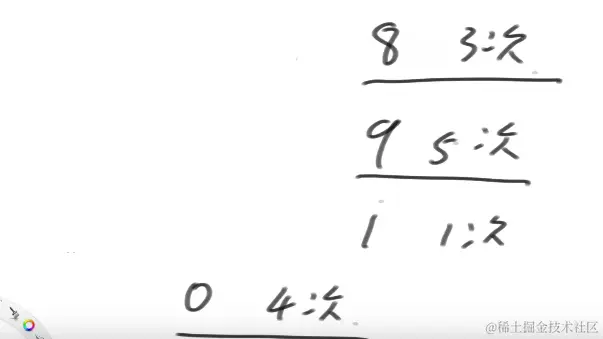 8 3次
9 5次
1 1次
0 4次
@稀土掘金技术社区